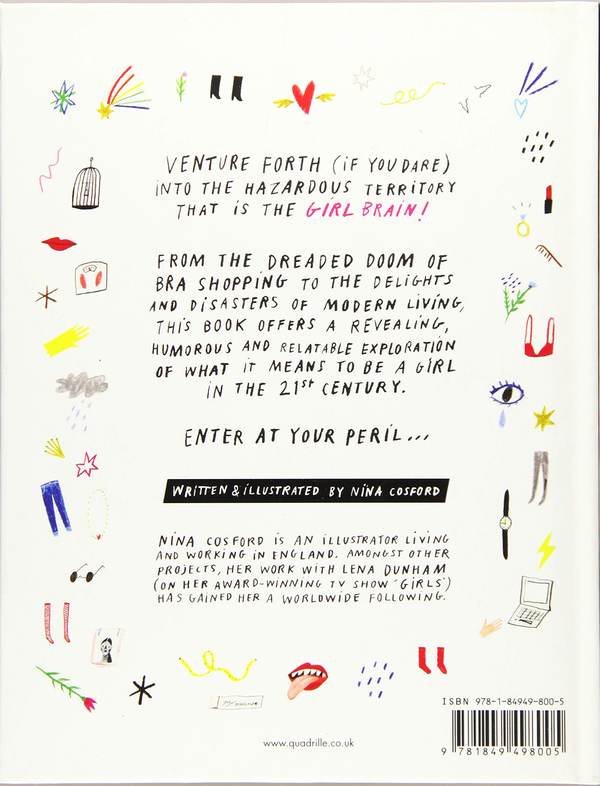 VENTURE FORTH (iF YOU DARE)
iNTO THE HAZARDOUS TERRiTORY
THAT iS THE GiRL BRAiN!
FROM THE DREADED DOOM OF
BRA SHOPPiNG TO THE DELiGHTS
AND DiSASTERS OF MODERN LiViNG,
THiS BOOK OFFERS A REVEALiNG,
HUMOROUS AND RELATABLE EXPLORATiON
OF WHAT iT MEANS TO BE A GiRL
iN THE 21st CENTURY.
ENTER AT YOUR PERiL...
WRiTTEN & iLLUSTRATED BY NiNA COSFORD
NiNA COSFORD iS AN iLLUSTRATOR LiViNG
AND WORKiNG iN ENGLAND. AMONGST OTHER
PROJECTS, HER WORK WiTH LENA DUNHAM
(ON HER AWARD-WiNNiNG TV SHOW 'GiRLS')
HAS GAiNED HER A WORLDWiDE FOLLOWiNG.
ISBN 978-1-84949-800-5
www.quadrille.co.uk
9 781849 498005